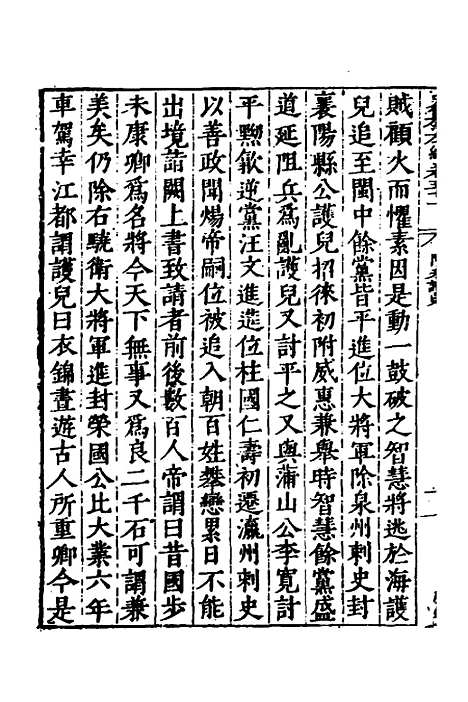 賊顧火而懼素因是動一鼓破之智慧將逃於海護
兒追至閩中餘黨皆平進位大將軍除泉州刺史封
襄陽縣公護兒招徠初附威惠兼舉時智慧餘黨盛
道延阻兵爲亂護兒又討平之又與蒲山公李寬討
平黟歙逆黨汪文進進位柱國仁壽初遷瀛州刺史
以善政聞煬帝嗣位被追入朝百姓攀戀累日不能
出境詣闕上書致請者前後數百人帝謂曰昔國步
未康卿爲名將今天下無事又爲良二千石可謂兼
美矣仍除右驍衛大將軍進封榮國公比大業六年
車駕幸江都謂護兒曰衣錦晝遊古人所重卿今是